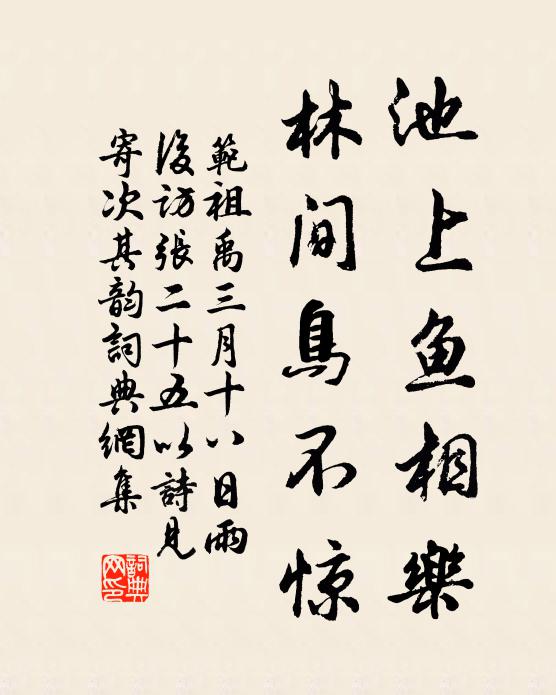 池上鱼相樂
林间鳥不惊
範祖禹三月十八日雨
後访張二十五以詩見
寄次其韵詞典網集
詞典网印